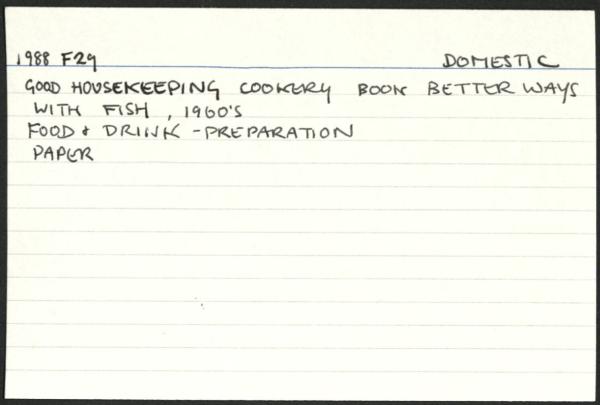 1988 F29 DOMESTIC
GOOD HOUSEKEEPING COOKERY BOOK BETTER WAYS
WITH FISH, 1960'S
FOOD & DRINK - PREPARATION
PAPER